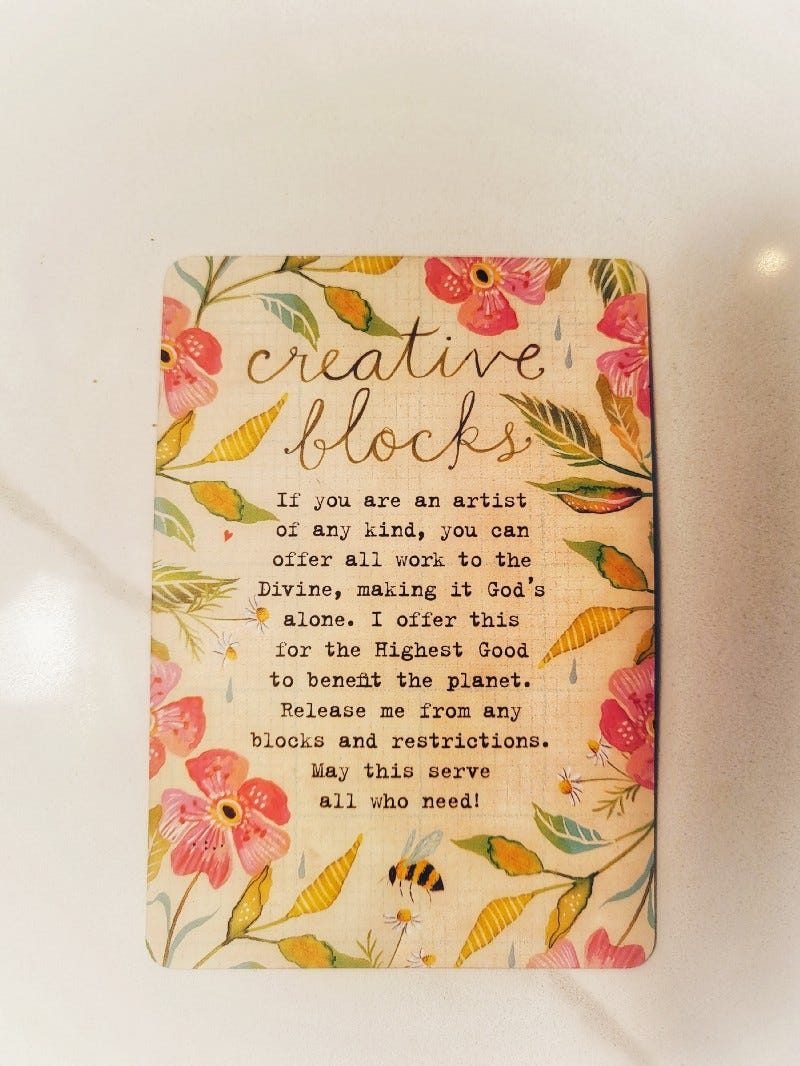 creative
blocks
If you are an artist
of any kind, you can
offer all work to the
Divine, making it God's
alone. I offer this
for the Highest Good
to benefit the planet.
Release me from any
blocks and restrictions.
May this serve
all who need!